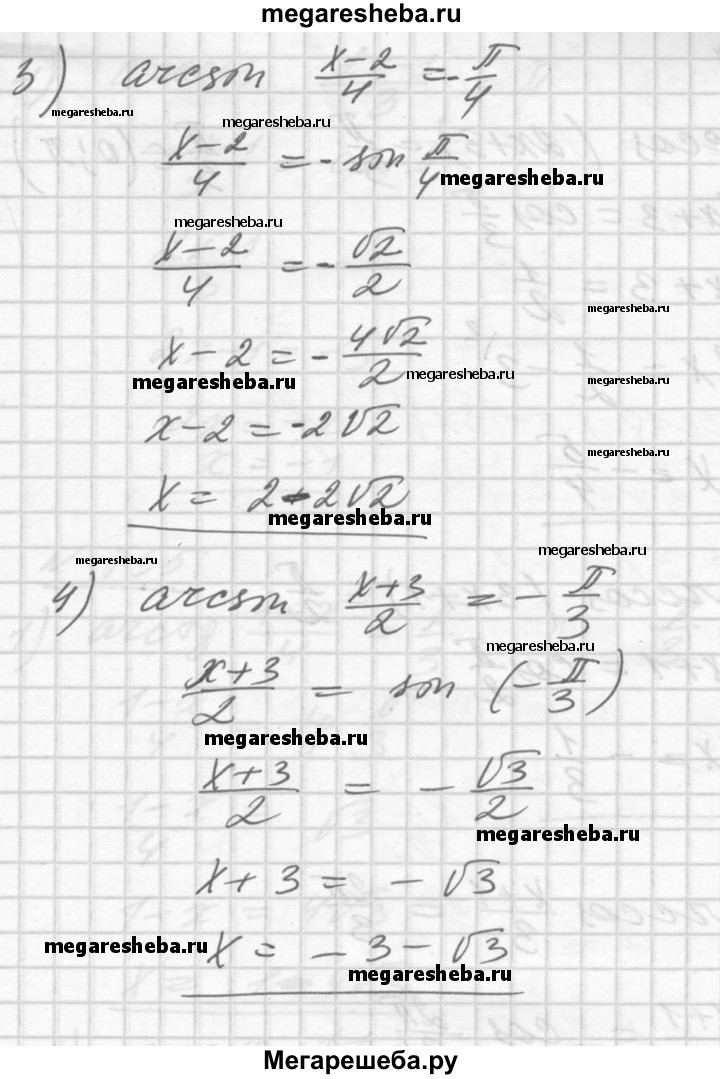 megaresheba.ru
3) arcsin (x-2)/4 = -π/4
megaresheba.ru
megaresheba.ru
(x-2)/4 = - sin π/4
megaresheba.ru
megaresheba.ru
(x-2)/4 = - √2/2
megaresheba.ru
x-2 = - 4√2/2
megaresheba.ru
megaresheba.ru
megaresheba.ru
x-2 = -2√2
megaresheba.ru
x = 2-2√2
megaresheba.ru
megaresheba.ru
megaresheba.ru
4) arcsin (x+3)/2 = - π/3
megaresheba.ru
(x+3)/2 = sin (-π/3)
megaresheba.ru
(x+3)/2 = - √3/2
megaresheba.ru
x+3 = - √3
megaresheba.ru
x = - 3 - √3
megaresheba.ru
Мегарешеба.ру